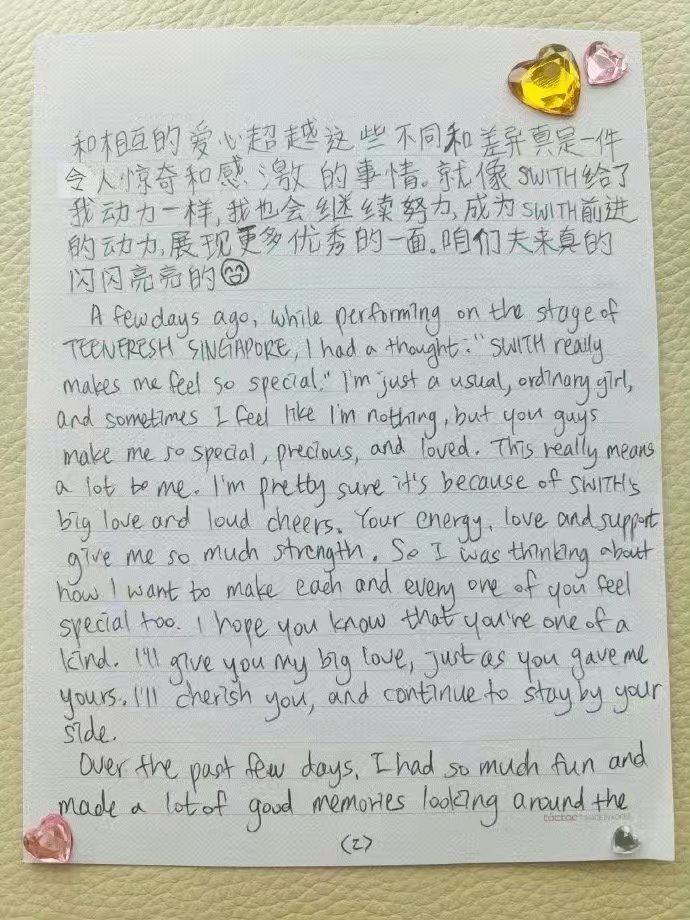 和相互的爱心超越这些不同和差异真是一件
令人惊奇和感激的事情。就像SWITH给了
我动力一样,我也会继续努力,成为SWITH前进
的动力,展现更多优秀的一面。咱们夫来真的
闪闪亮亮的
A few days ago, while performing on the stage of
TEENFRESH SINGAPORE, I had a thought: "SWITH really
makes me feel so special." I'm just a usual, ordinary girl,
and sometimes I feel like I'm nothing, but you guys
make me so special, precious, and loved. This really means
a lot to me. I'm pretty sure it's because of SWITH's
big love and loud cheers. Your energy, love and support
give me so much strength. So I was thinking about
how I want to make each and every one of you feel
special too. I hope you know that you're one of a
kind. I'll give you my big love, just as you gave me
yours. I'll cherish you, and continue to stay by your
side.
Over the past few days, I had so much fun and
made a lot of good memories looking around the
MADE IN KOREA
(2)